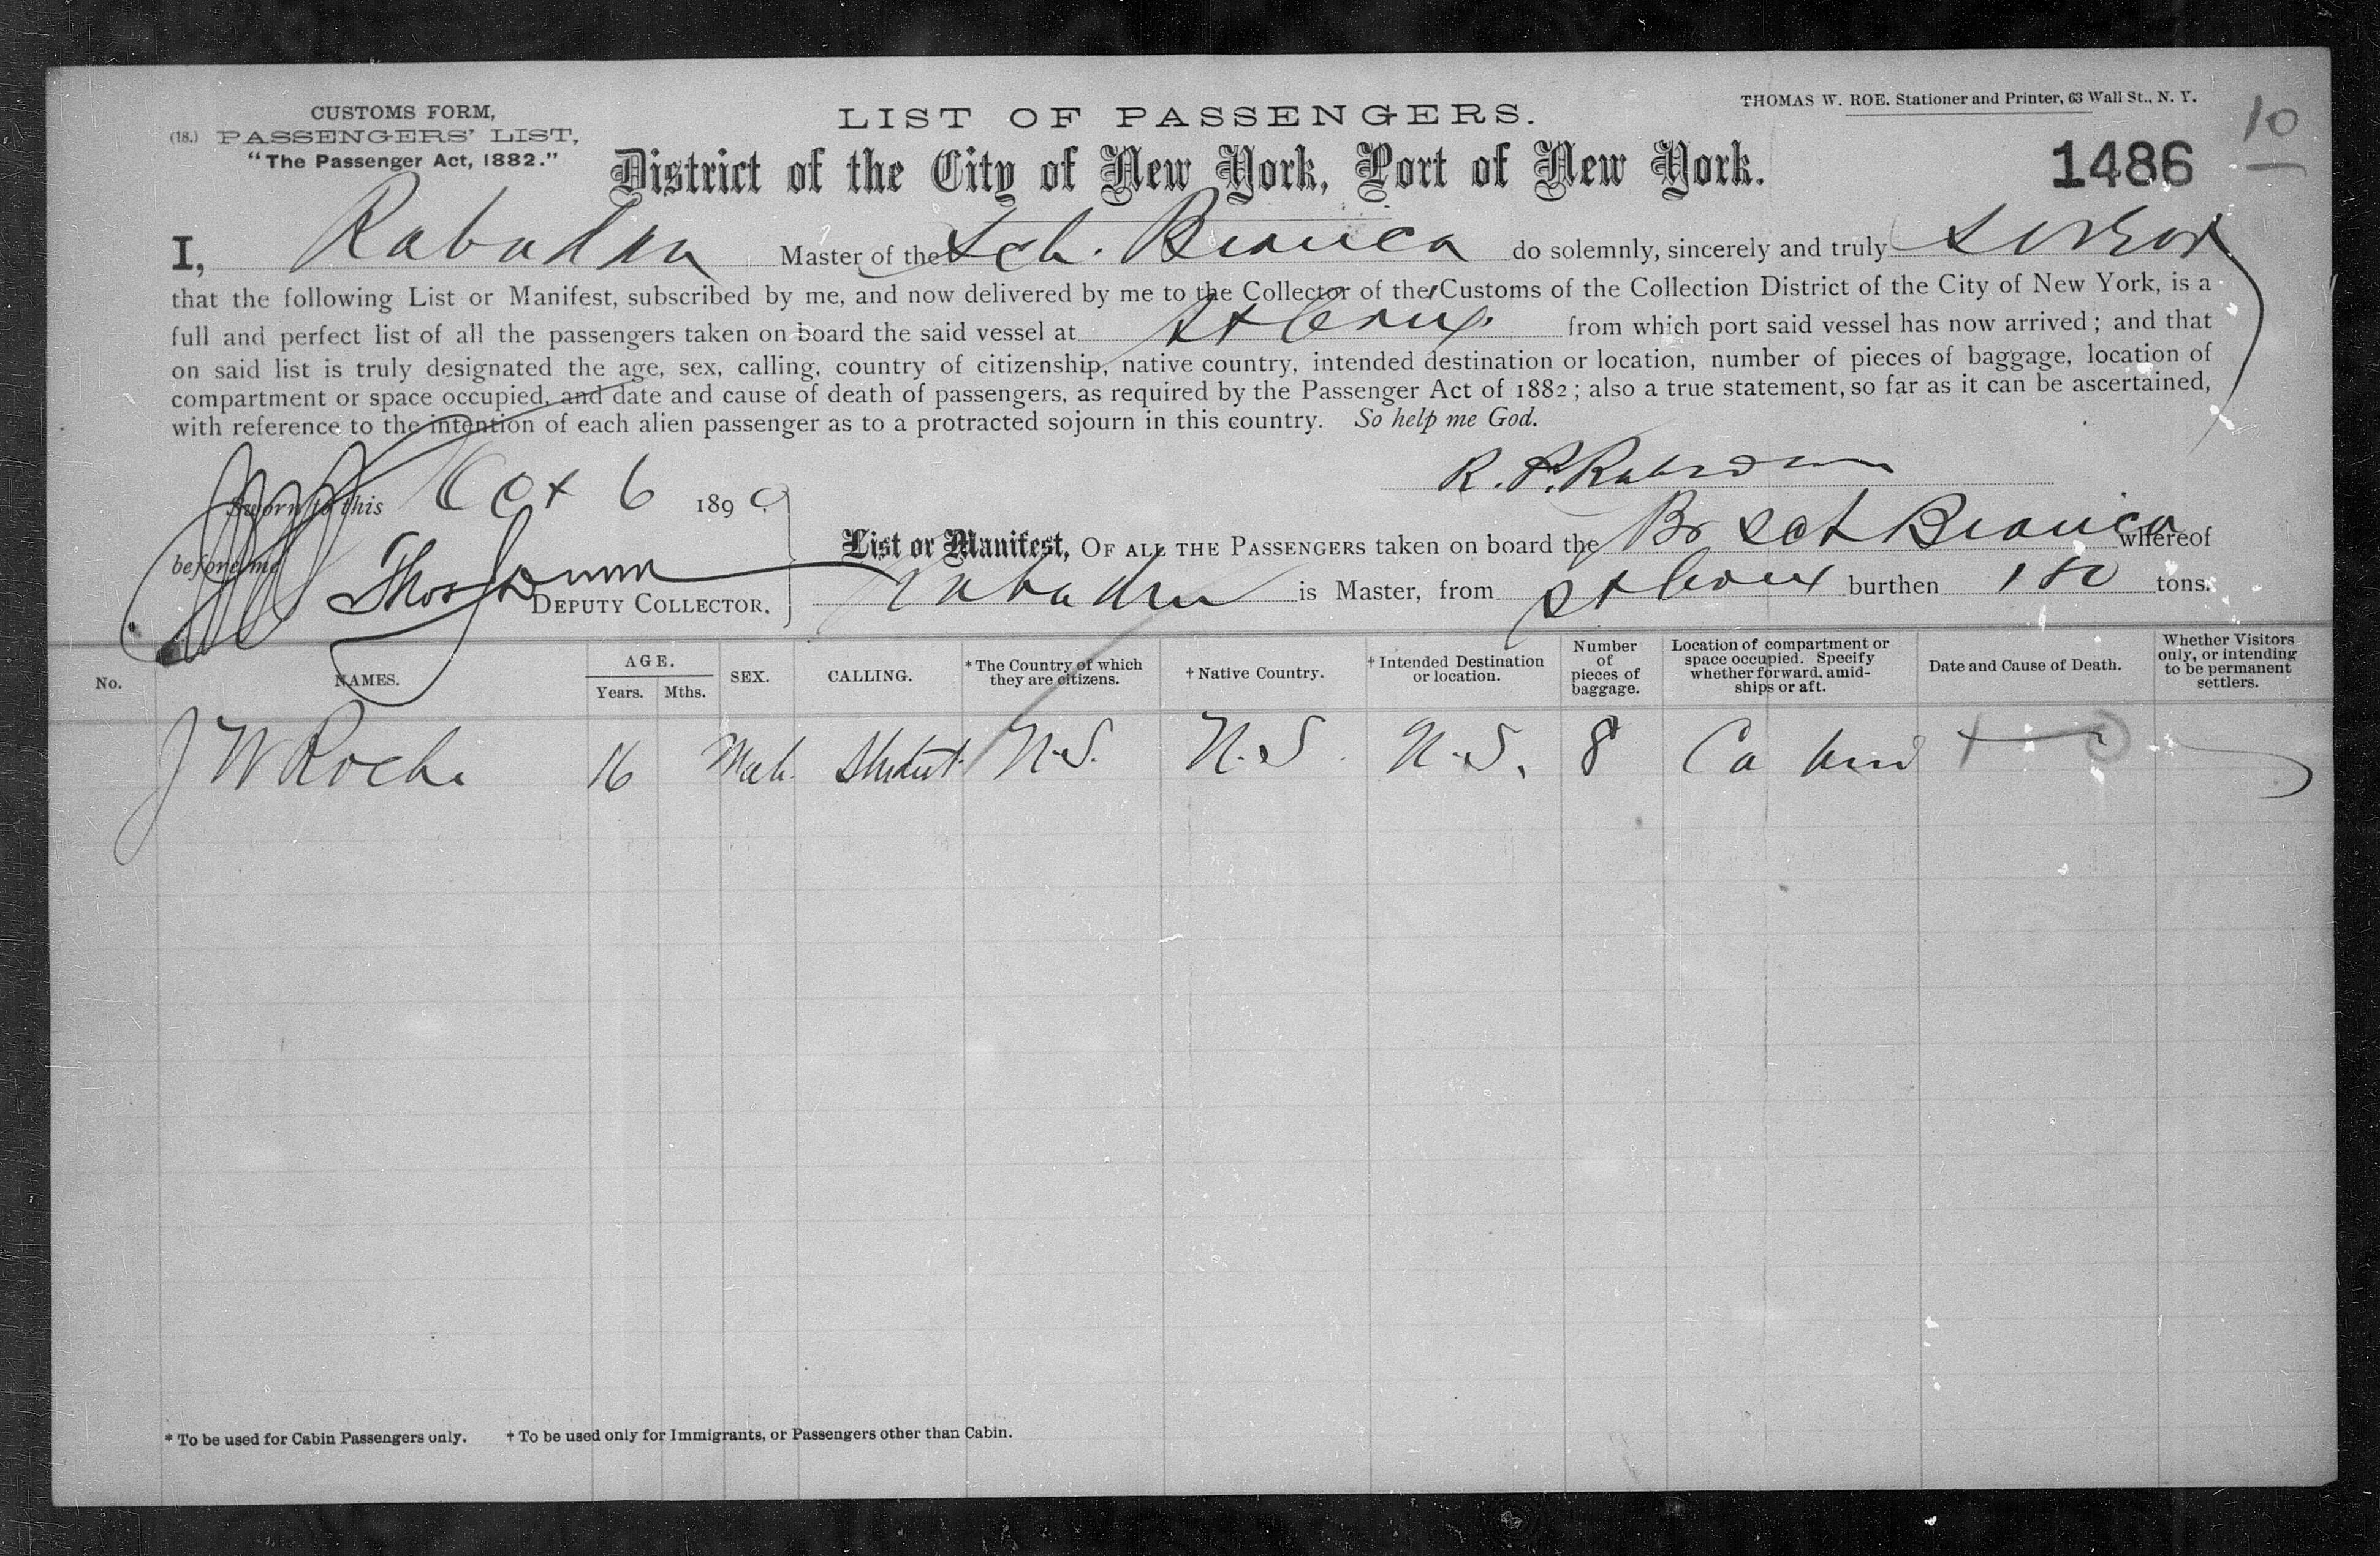 CUSTOMS FORM,
(18.) PASSENGERS' LIST,
"The Passenger Act, 1882."
LIST OF PASSENGERS.
THOMAS W. ROE. Stationer and Printer, 63 Wall St., N. Y.
10
District of the City of New York, Port of New York.
1486
I, Rabadan Master of the Sch. Bianca do solemnly, sincerely and truly swear
that the following List or Manifest, subscribed by me, and now delivered by me to the Collector of the Customs of the Collection District of the City of New York, is a
full and perfect list of all the passengers taken on board the said vessel at St Croix from which port said vessel has now arrived; and that
on said list is truly designated the age, sex, calling, country of citizenship, native country, intended destination or location, number of pieces of baggage, location of
compartment or space occupied, and date and cause of death of passengers, as required by the Passenger Act of 1882; also a true statement, so far as it can be ascertained,
with reference to the intention of each alien passenger as to a protracted sojourn in this country. So help me God.
R. P. Rabadan
Sworn to this Oct 6 189
before me
Thos Dunn
DEPUTY COLLECTOR.
List or Manifest, OF ALL THE PASSENGERS taken on board the Br Sch Bianca whereof
Rabadan is Master, from St Croix burthen 180 tons.
No. NAMES. AGE. Years. Mths. SEX. CALLING. *The Country of which they are citizens. † Native Country. † Intended Destination or location. Number of pieces of baggage. Location of compartment or space occupied. Specify whether forward, amidships or aft. Date and Cause of Death. Whether Visitors only, or intending to be permanent settlers.
J W Roche 16 Male Student N.S. N.S. N.S. 8
* To be used for Cabin Passengers only. † To be used only for Immigrants, or Passengers other than Cabin.